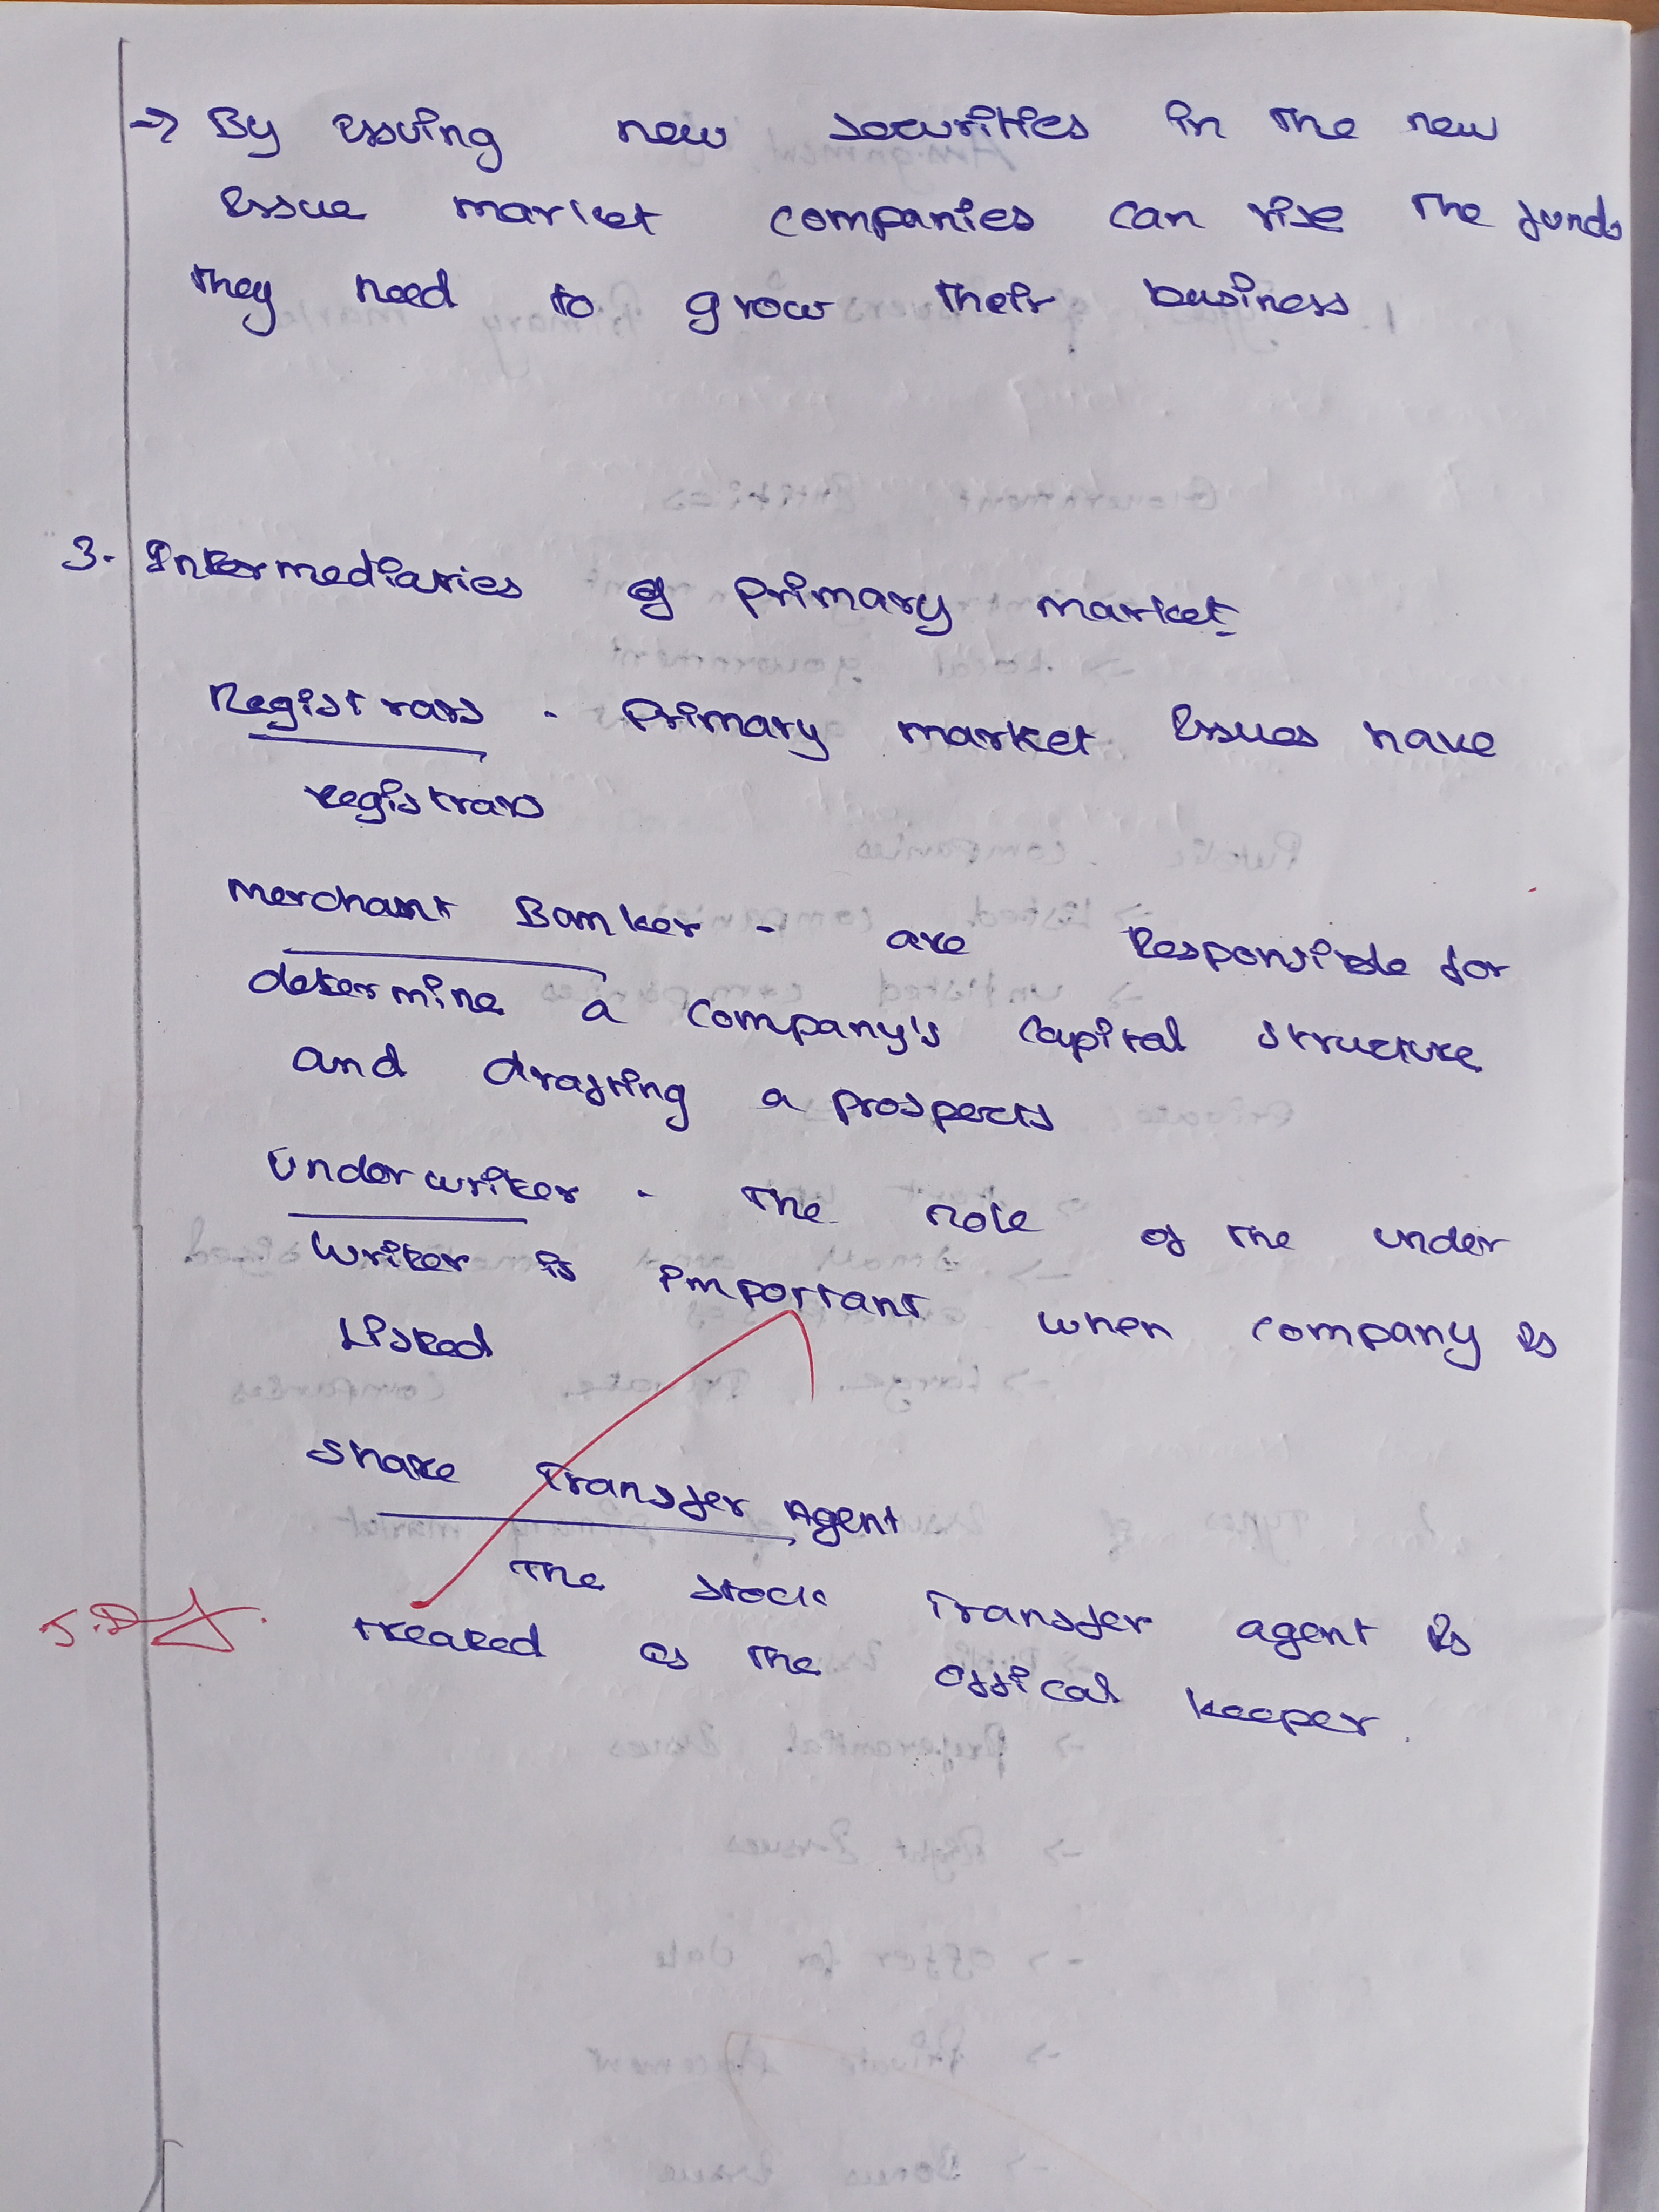 → By issuing new securities in the new
issue market companies can rise the funds
they need to grow their business
3. Intermediaries of primary market:
Registrars - Primary market issues have
registrars
Merchant Banker - are Responsible for
determine a company's capital structure
and drafting a prospects
Underwriter - The role of the under
writer is important when company is
listed
Share Transfer Agent
The stock Transfer agent is
treated as the offical keeper.